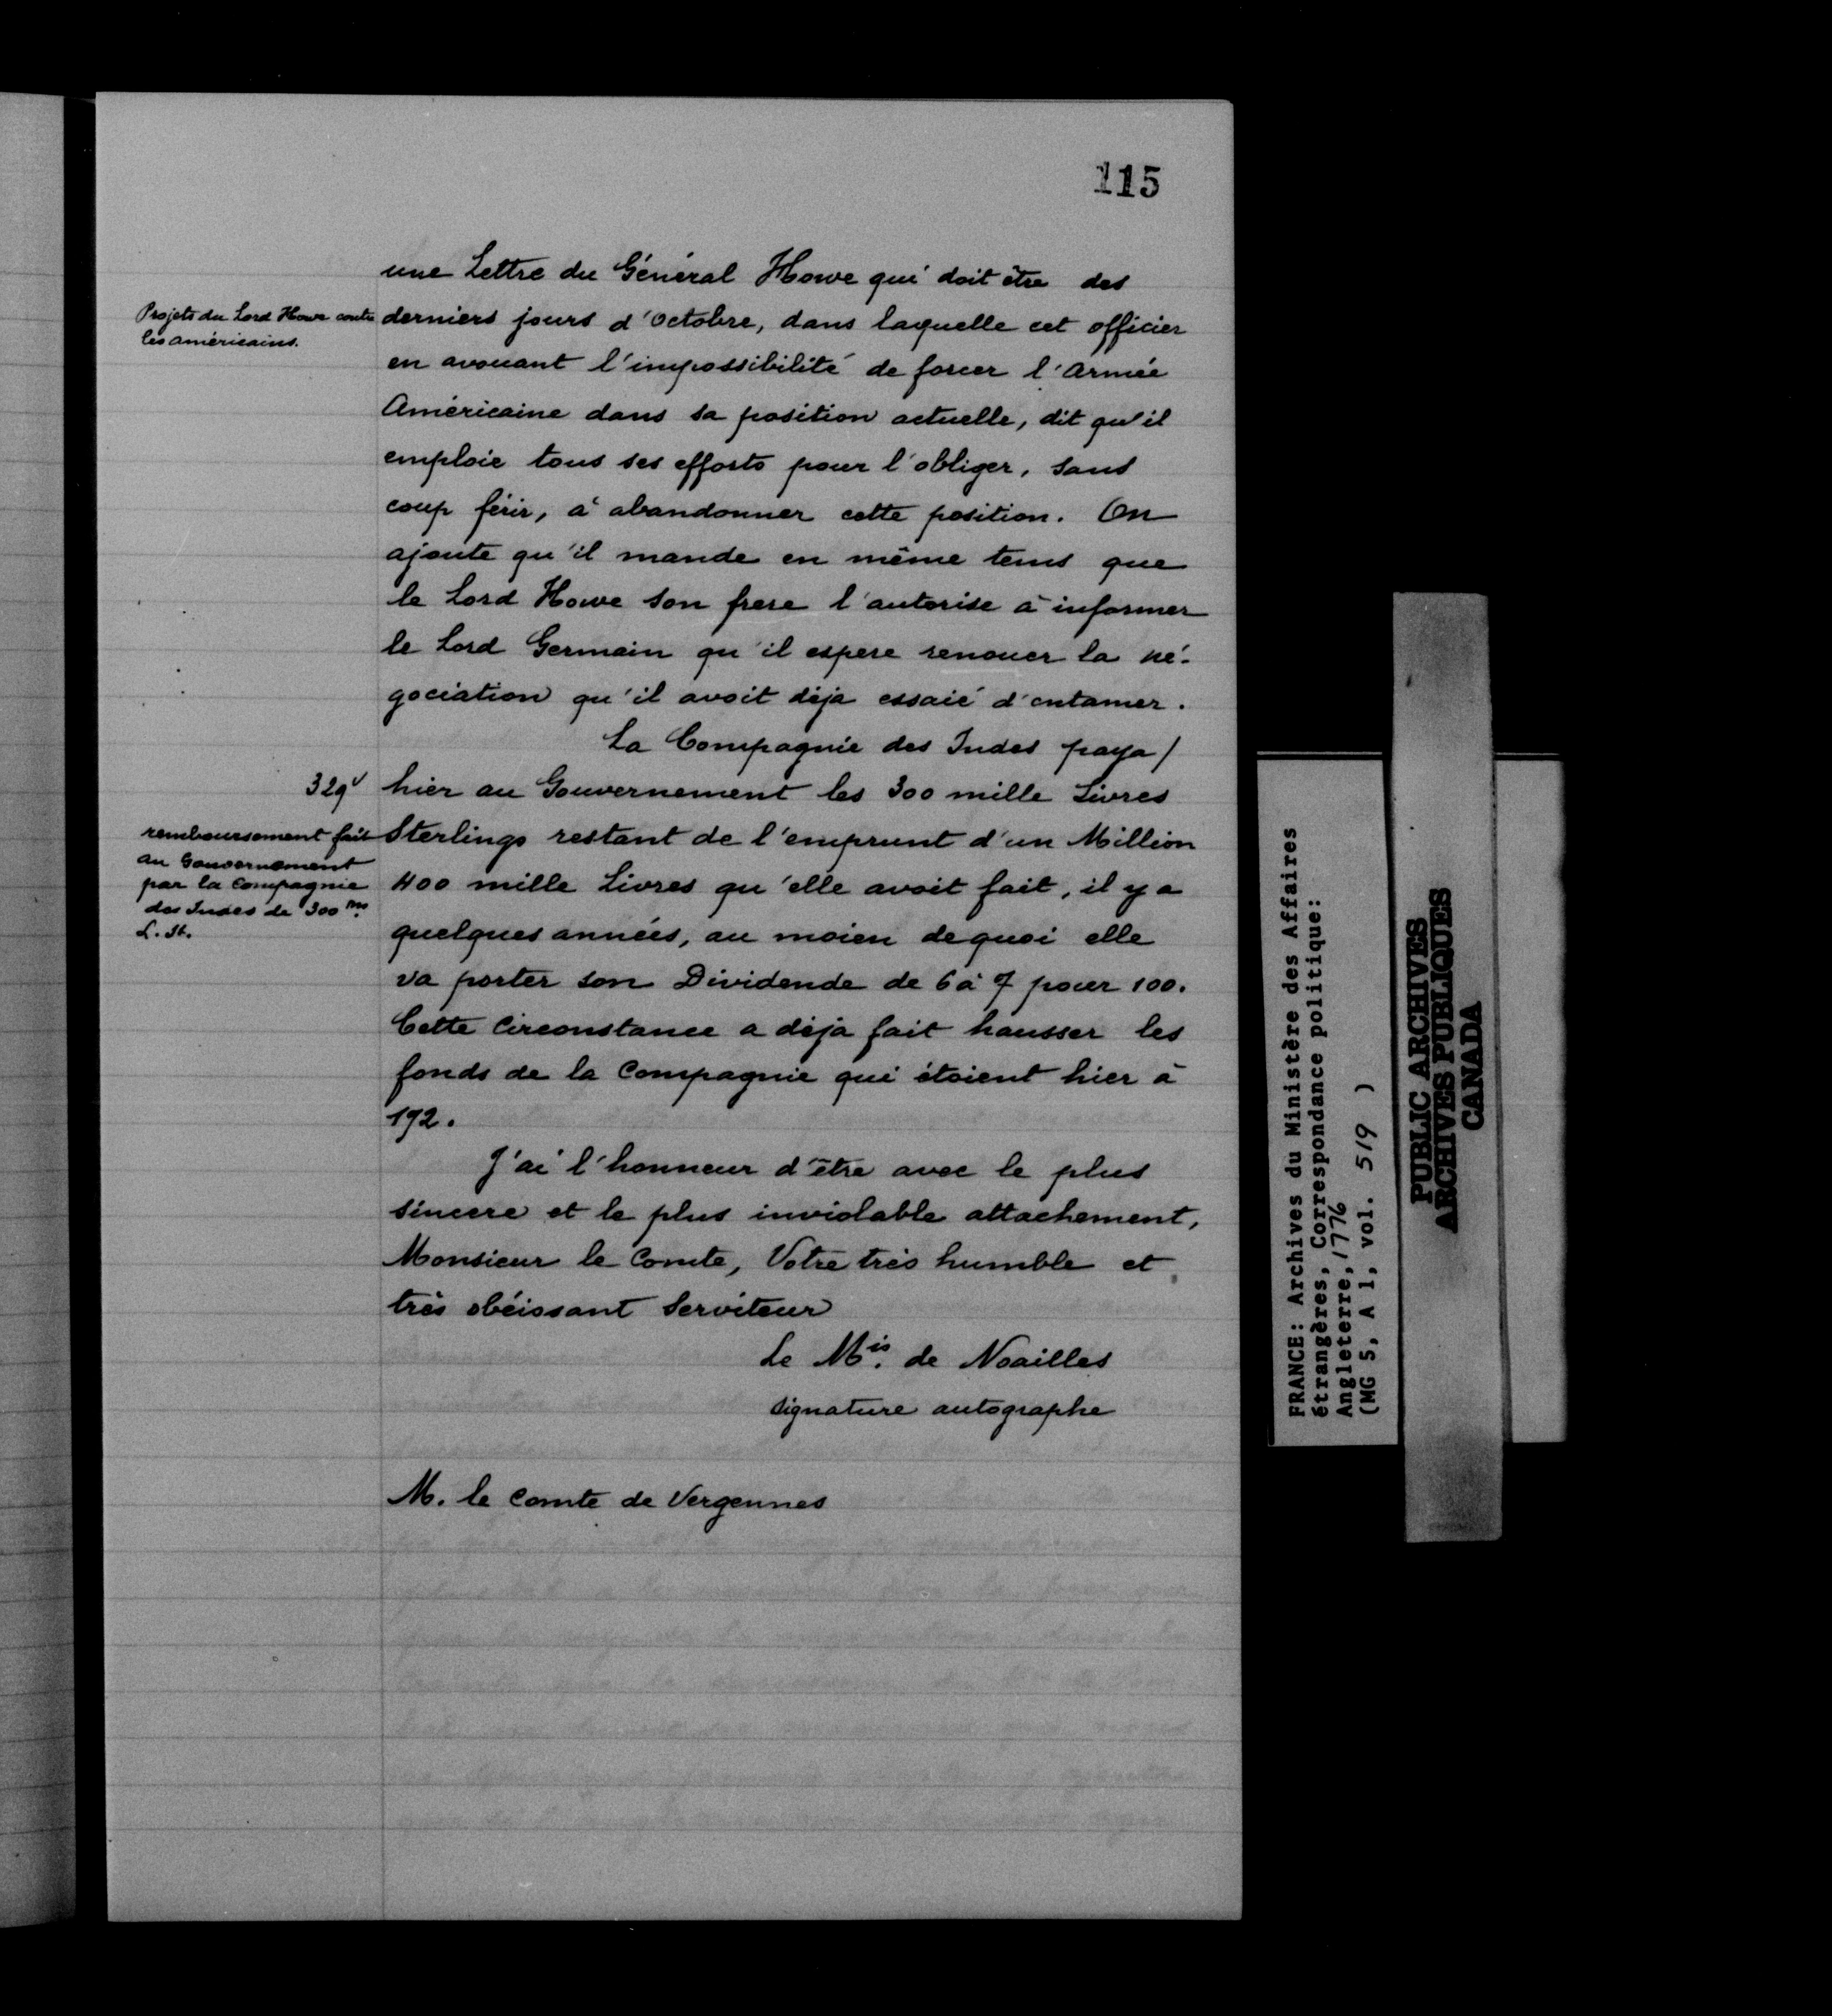 115
une Lettre du Général Howe qui doit être des
Projets du Lord Howe contre
les américains.
derniers jours d'Octobre, dans laquelle cet officier
en avouant l'impossibilité de forcer l'Armée
Américaine dans sa position actuelle, dit qu'il
emploie tous ses efforts pour l'obliger, sans
coup férir, à abandonner cette position. On
ajoute qu'il mande en même tems que
le Lord Howe son frere l'autorise à informer
le Lord Germain qu'il espere renouer la né-
gociation qu'il avoit déja essaié d'entamer.
La Compagnie des Indes paya /
329v
hier au Gouvernement les 300 mille Livres
remboursement fait
au Gouvernement
par la Compagnie
des Indes de 300 m.
L. St.
Sterlings restant de l'emprunt d'un Million
400 mille Livres qu'elle avoit fait, il y a
quelques années, au moien dequoi elle
va porter son Dividende de 6 à 7 pour 100.
Cette Circonstance a déja fait hausser les
fonds de la Compagnie qui étoient hier à
172.
J'ai l'honneur d'être avec le plus
sincere et le plus inviolable attachement,
Monsieur le Comte, Votre très humble et
très obéissant Serviteur
Le Mis. de Noailles
signature autographe
M. le Comte de Vergennes
FRANCE: Archives du Ministère des Affaires
étrangères, Correspondance politique:
Angleterre, 1776
(MG 5, A 1, vol. 519 )
PUBLIC ARCHIVES
ARCHIVES PUBLIQUES
CANADA